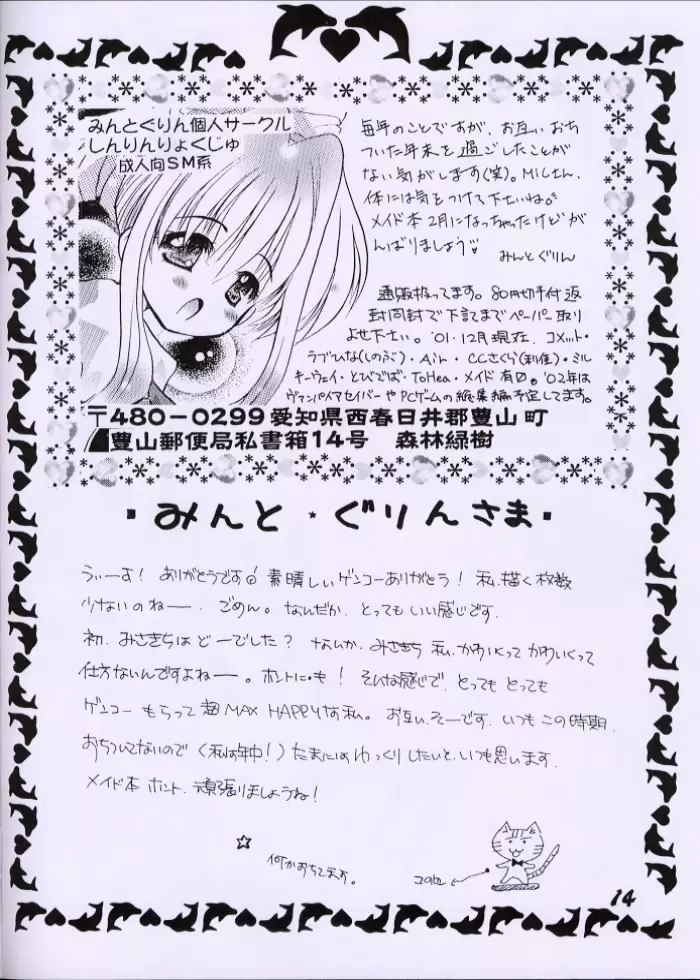 みんとぐりん個人サークル
しんりんりょくじゅ
成人向SM系
毎年のことですが、お互いおち
ついた年末を過ごしたことが
ない気がします(笑)。MILさん、
体には気をつけて下さいね。
メイド本2月になっちゃったけどが
んばりましょう
みんとぐりん
通販扱ってます。80円切手付返
封同封で下記までペーパー取り
よせ下さい。'01・12月現在、コメット・
ラブひな(しのぶ)・Air・CCさくら(利佳)・ミル
キーウェイ・とびでば・ToHea・メイド有り。'02年は
ヴァンパイアセイバーやPCゲームの総集編予定してます。
〒480-0299愛知県西春日井郡豊山町
豊山郵便局私書箱14号 森林緑樹
みんと・ぐりんさま
うぃーす! ありがとうです! 素晴しいゲンコーありがとう! 私、描く枚数
少ないのねー、ごめん。なんだか、とってもいい感じです。
初、みさきちはどーでした? なんか、みさきち 私、かわいくって かわいくって
仕方ないんですよねー。ホントに・も! そんな感じで、とっても とっても
ゲンコー もらって 超MAX HAPPYな私。お互い、そーです、いつも この時期、
おちついてないので(私は年中!)たまにはゆっくりしたいと、いつも思います。
メイド本 ホント、頑張りましょうね!
☆
何かおちてます。
14